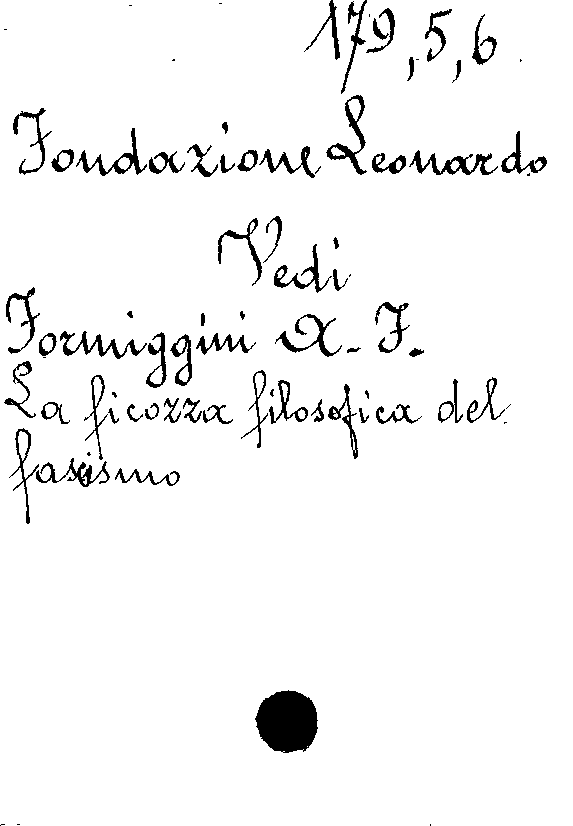 179,5,6
Fondazione Leonardo
Vedi
Formiggini A. F.
La ficozza filosofica del
fascismo